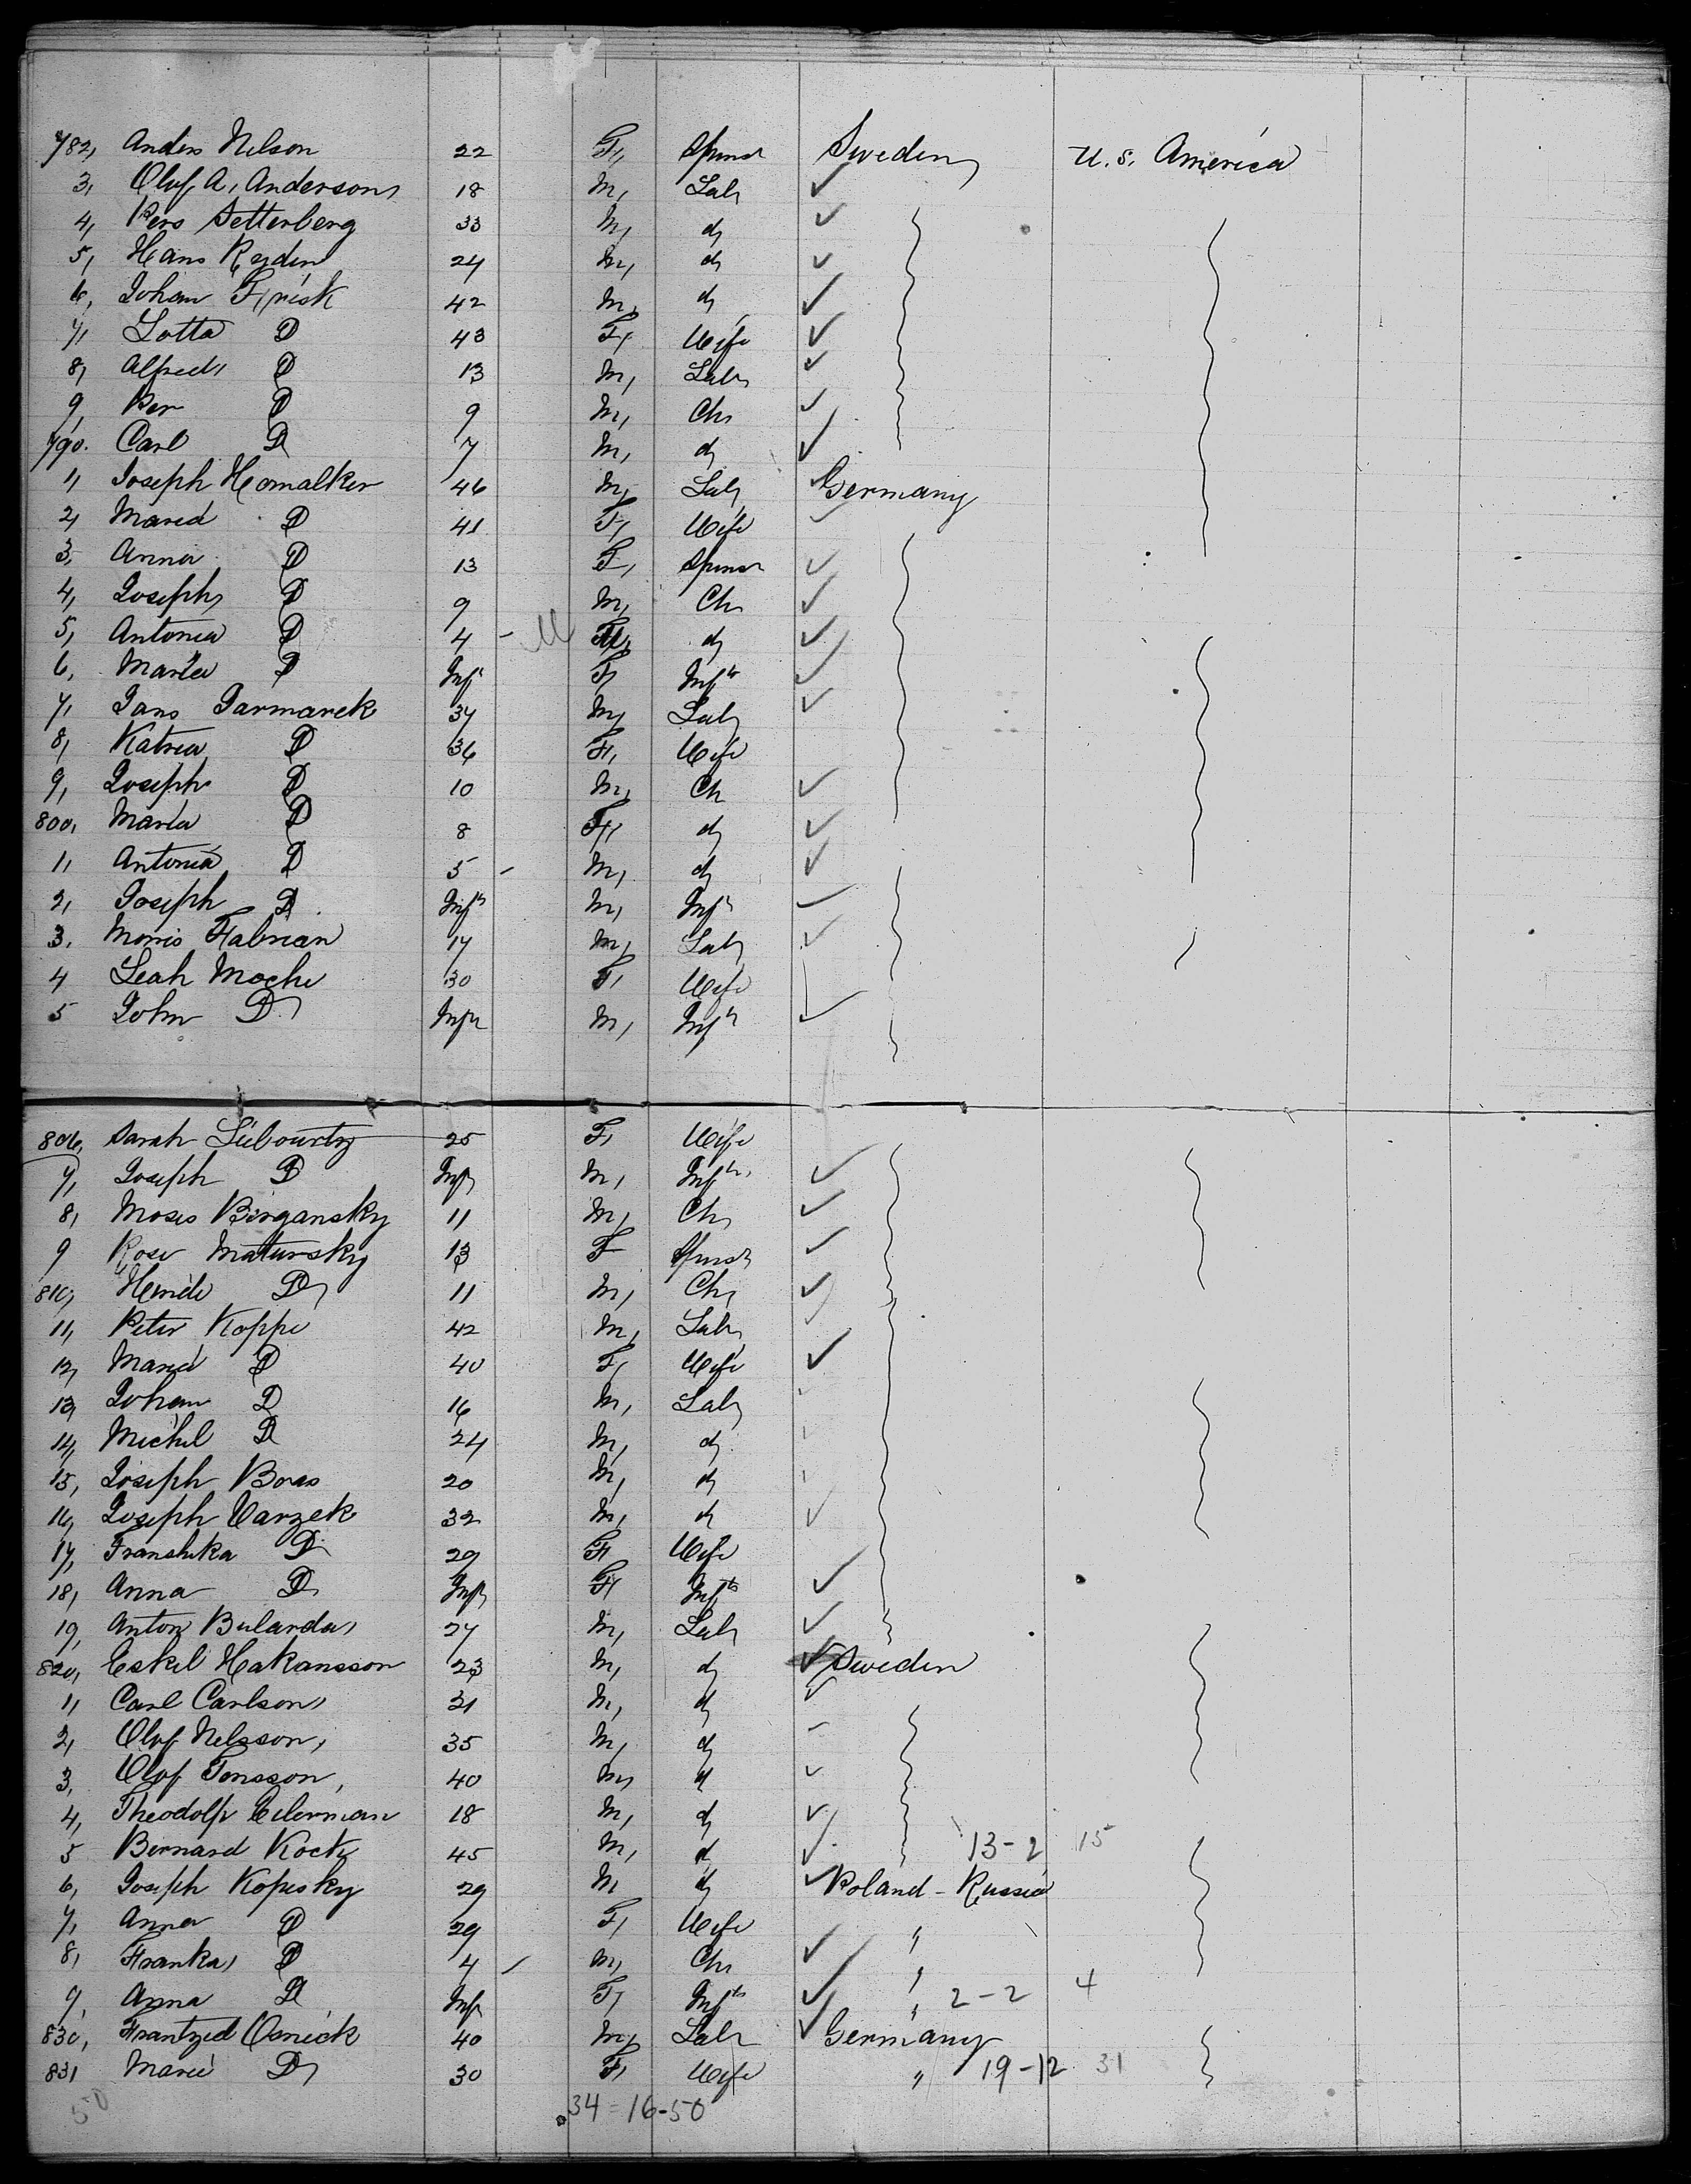 782, Anders Nelson 22 F, Spinsr Sweden, U.S. America
3, Oluf A, Anderson, 18 M, Labr
4, Pers Setterberg 33 M, do
5, Hans Ryden 24 M, do
6, Johan Frisk 42 M, do
7, Lotta D 43 F, Wife
8, Alfred, D 13 M, Labr
9, Per D 9 M, Ch
790. Carl D 7 M, do
1, Joseph 46 M, Labr Germany
2, Maria D 41 F, Wife
3, Anna D 13 F, Spinsr
4, Joseph, D 9 M, Ch
5, Antonia D 4 - M do
6, Maria D Inft F, Inft
7, Jans Jarmarek 37 M, Labr
8, Katria D 36 F, Wife
9, Joseph D 10 M, Ch
800, Maria D 8 F, do
1, Antonia D 5 - M, do
2, Joseph D Inft M, Inft
3, Morris Fabrian 17 M, Labr
4 Leah Mochi 30 F, Wife
5 John D Inft M, Inft
806, Sarah Liebourtz 25 F, Wife
7, Joseph D Inft M, Inft
8, Moses Birgansky 11 M, Ch
9 Rose Matursky 13 F Spinsr
810, D 11 M, Ch
11, Peter Koppe 42 M, Labr
12, Maria D 40 F, Wife
13, Johan D 16 M, Labr
14, Michel D 24 M, do
15, Joseph Boras 20 M, do
16, Joseph Varzek 32 M, do
17, Franshka D 29 F Wife
18, Anna D Inft F Inft
19, Anton Bularda, 27 M, Labr
820, Eskil Hakansson 23 M, do Sweden
1, Carl Carlson, 31 M, do
2, Olof Nelsson, 35 M, do
3, Olof Tonsson, 40 M, do
4, Theodolf 18 M, do
5 Bernard Kock 45 M, do 13-2 15
6, Joseph Kopisky 29 M do Poland - Russia
7, Anna D 29 F, Wife "
8, Franka, D 4 M, Ch "
9, Anna D Inft F, Inft " 2-2 4
830, Frantzed Osnick 40 M, Labr Germany
831 Marie D 30 F, Wife " 19-12 31
50 34 = 16-50